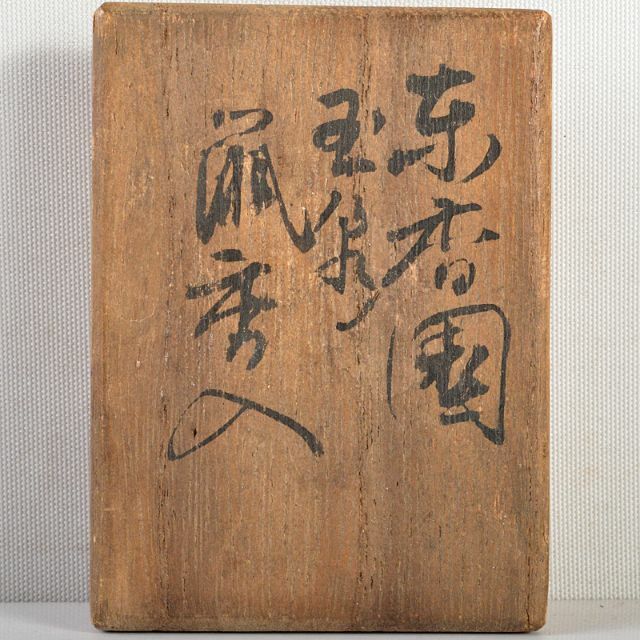 東香園
玉泉
鼠香入